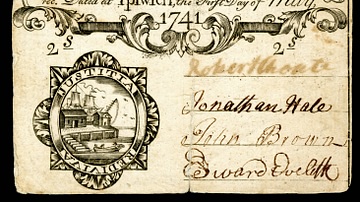 rec. Dated at Ipswich, the First Day of May,
1741.
2 S
2 S
Robert Choate
Jonathan Hale
John Brown
Edward Eveleth
JUSTITIA REDIVIVA